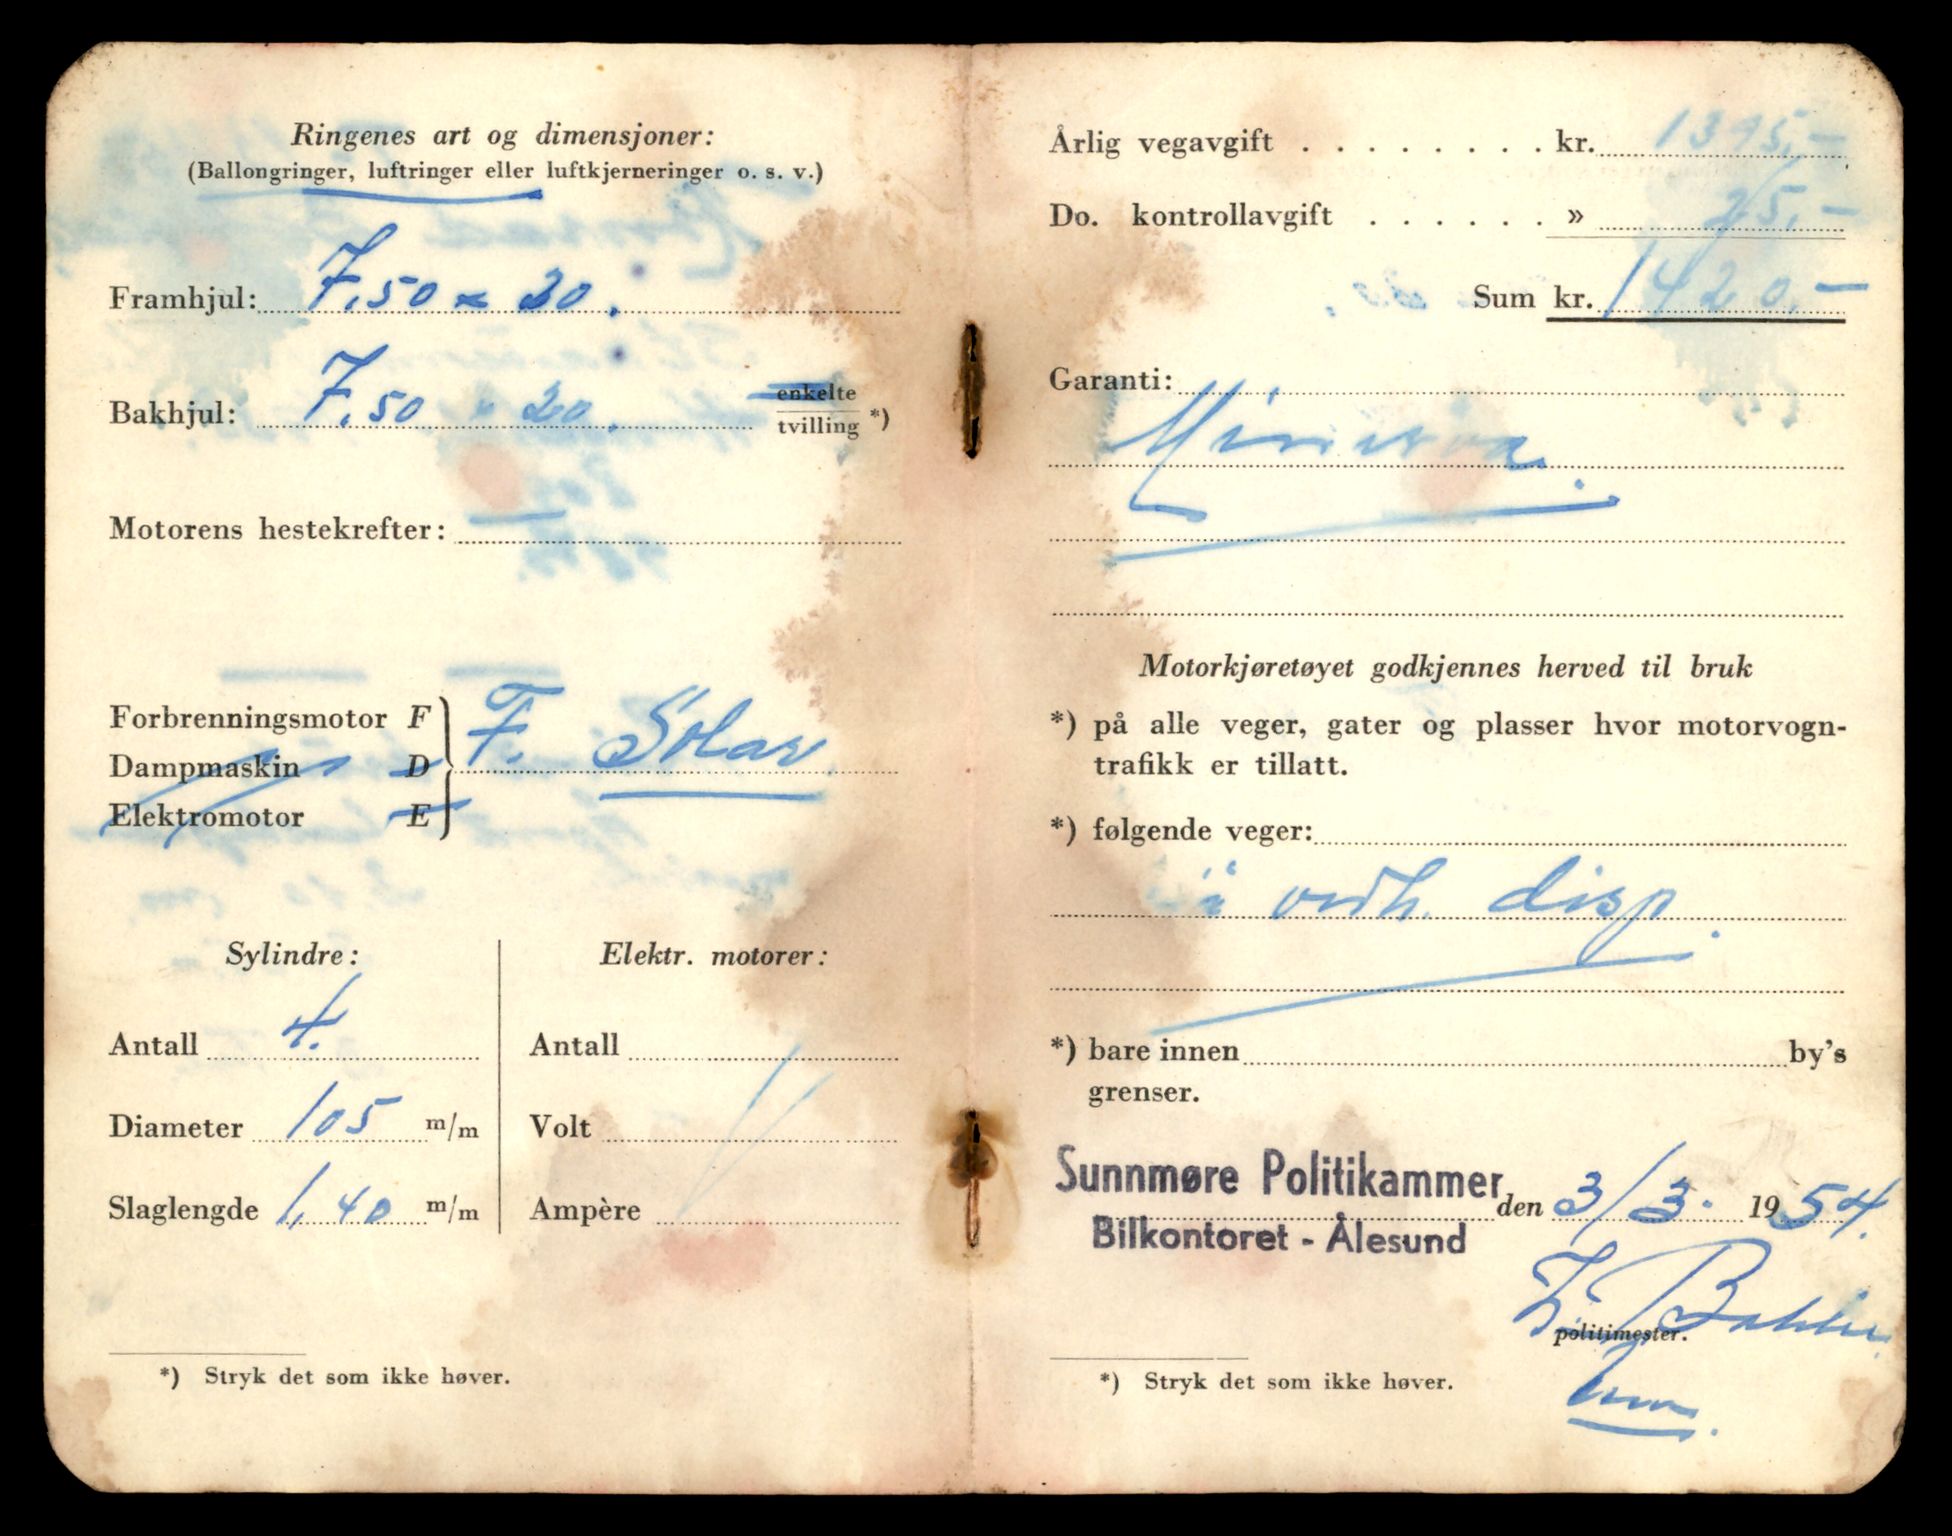 Ringenes art og dimensjoner:
(Ballongringer, luftringer eller luftkjerneringer o. s. v.)
Framhjul: 7.50 x 20.
Bakhjul: 7.50 " 20. enkelte
tvilling *)
Motorens hestekrefter: —
Forbrenningsmotor F
Dampmaskin D
Elektromotor E
F. Solar
Sylindre:
Antall 4.
Diameter 105 m/m
Slaglengde 1,40 m/m
Elektr. motorer:
Antall
Volt
Ampère
*) Stryk det som ikke høver.
Årlig vegavgift . . . . . . . . kr. 1395,-
Do. kontrollavgift . . . . . . » 25,-
Sum kr. 1420,-
Garanti:
Minerva.
Motorkjøretøyet godkjennes herved til bruk
*) på alle veger, gater og plasser hvor motorvogn-
trafikk er tillatt.
*) følgende veger:
i vedh. disp.
*) bare innen by's
grenser.
Sunnmøre Politikammer den 3/3. 1954.
Bilkontoret - Ålesund
politimester.
*) Stryk det som ikke høver.